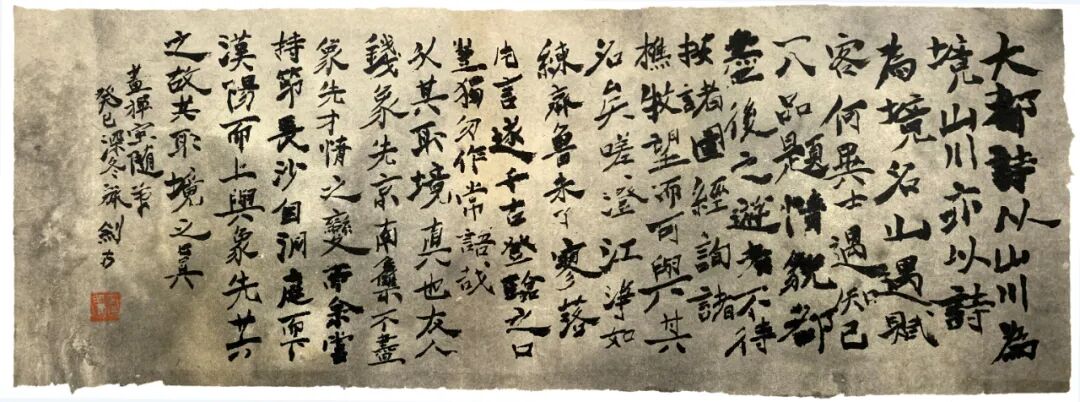 大都詩以山川為
境山川亦以詩
為境名山遇賦
客何異士遇知己
一入品題情貌都
盡後之遊者不待
按諸圖經詢諸
樵牧望而可舉其
名矣嗟澄江净如
練齊魯未了寥落
片言遂千古登臨之口
豈獨勿作常語哉
以其取境真也友人
錢象先京南集不盡
象先才情之變而余嘗
持節長沙自洞庭而下
漢陽而上與象先共
之故其取境之真
畫禪室隨筆
癸巳深冬齊劍